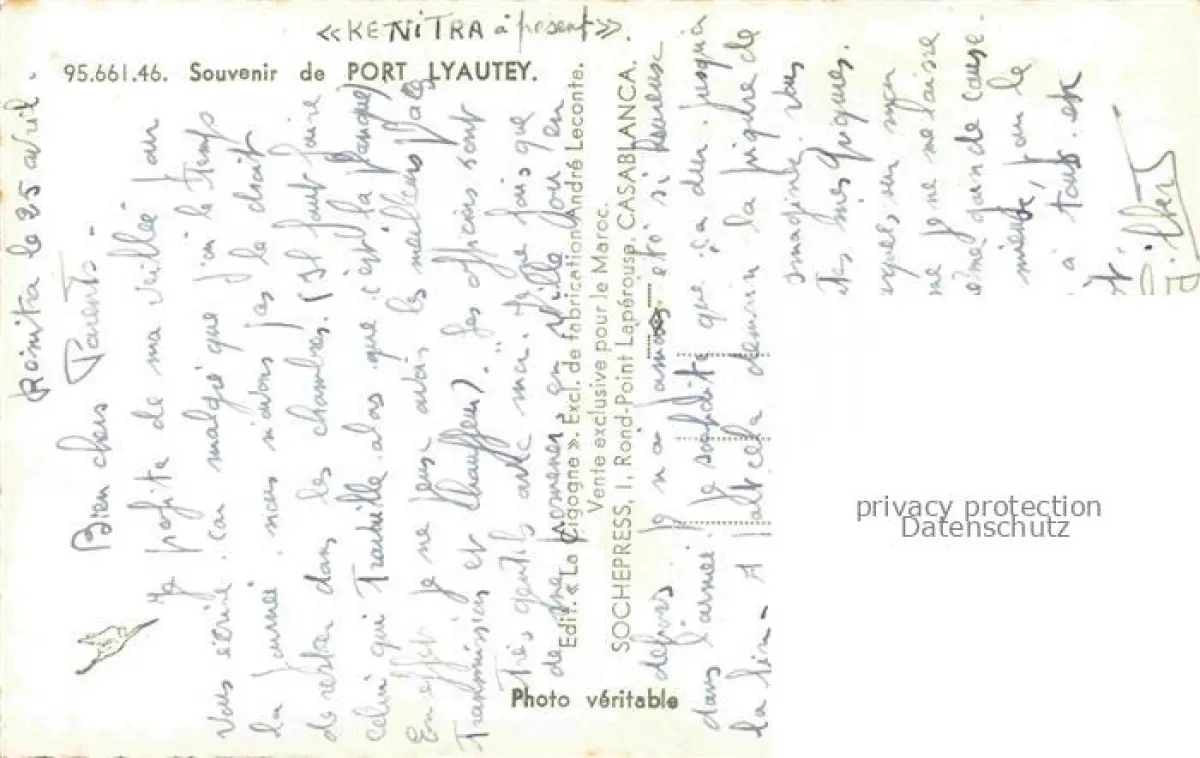 «KENITRA à présent».
95.661.46. Souvenir de PORT LYAUTEY.
Kénitra le 25 avril.
Bien chers Parents.
Je profite de ma veillée au
Vous écrire. Car malgré que j'ai le temps
la journée. nous n'avons pas le droit
de rester dans les chambres. (Il faut faire
celui qui travaille alors que c'est la planque)
En effet je ne peux avoir les meilleurs places
Transmission et Chauffeur). Les officiers sont
Très gentils avec moi. Je fais que
de me promener en ville ou en
dehors. Je n'ai jamais été si heureux
dans l'armée. Je souhaite que ça dure jusqu'à
la fin - A part cela demain la piqûre de
imagine vous
mes piques.
un mon
je ne me laisse
cause.
mieux, on le
à tous est
Edit. « La Cigogne ». Excl. de fabrication André Leconte.
Vente exclusive pour le Maroc.
SOCHEPRESS, 1, Rond-Point Lapérouse. CASABLANCA.
Photo véritable
privacy protection
Datenschutz